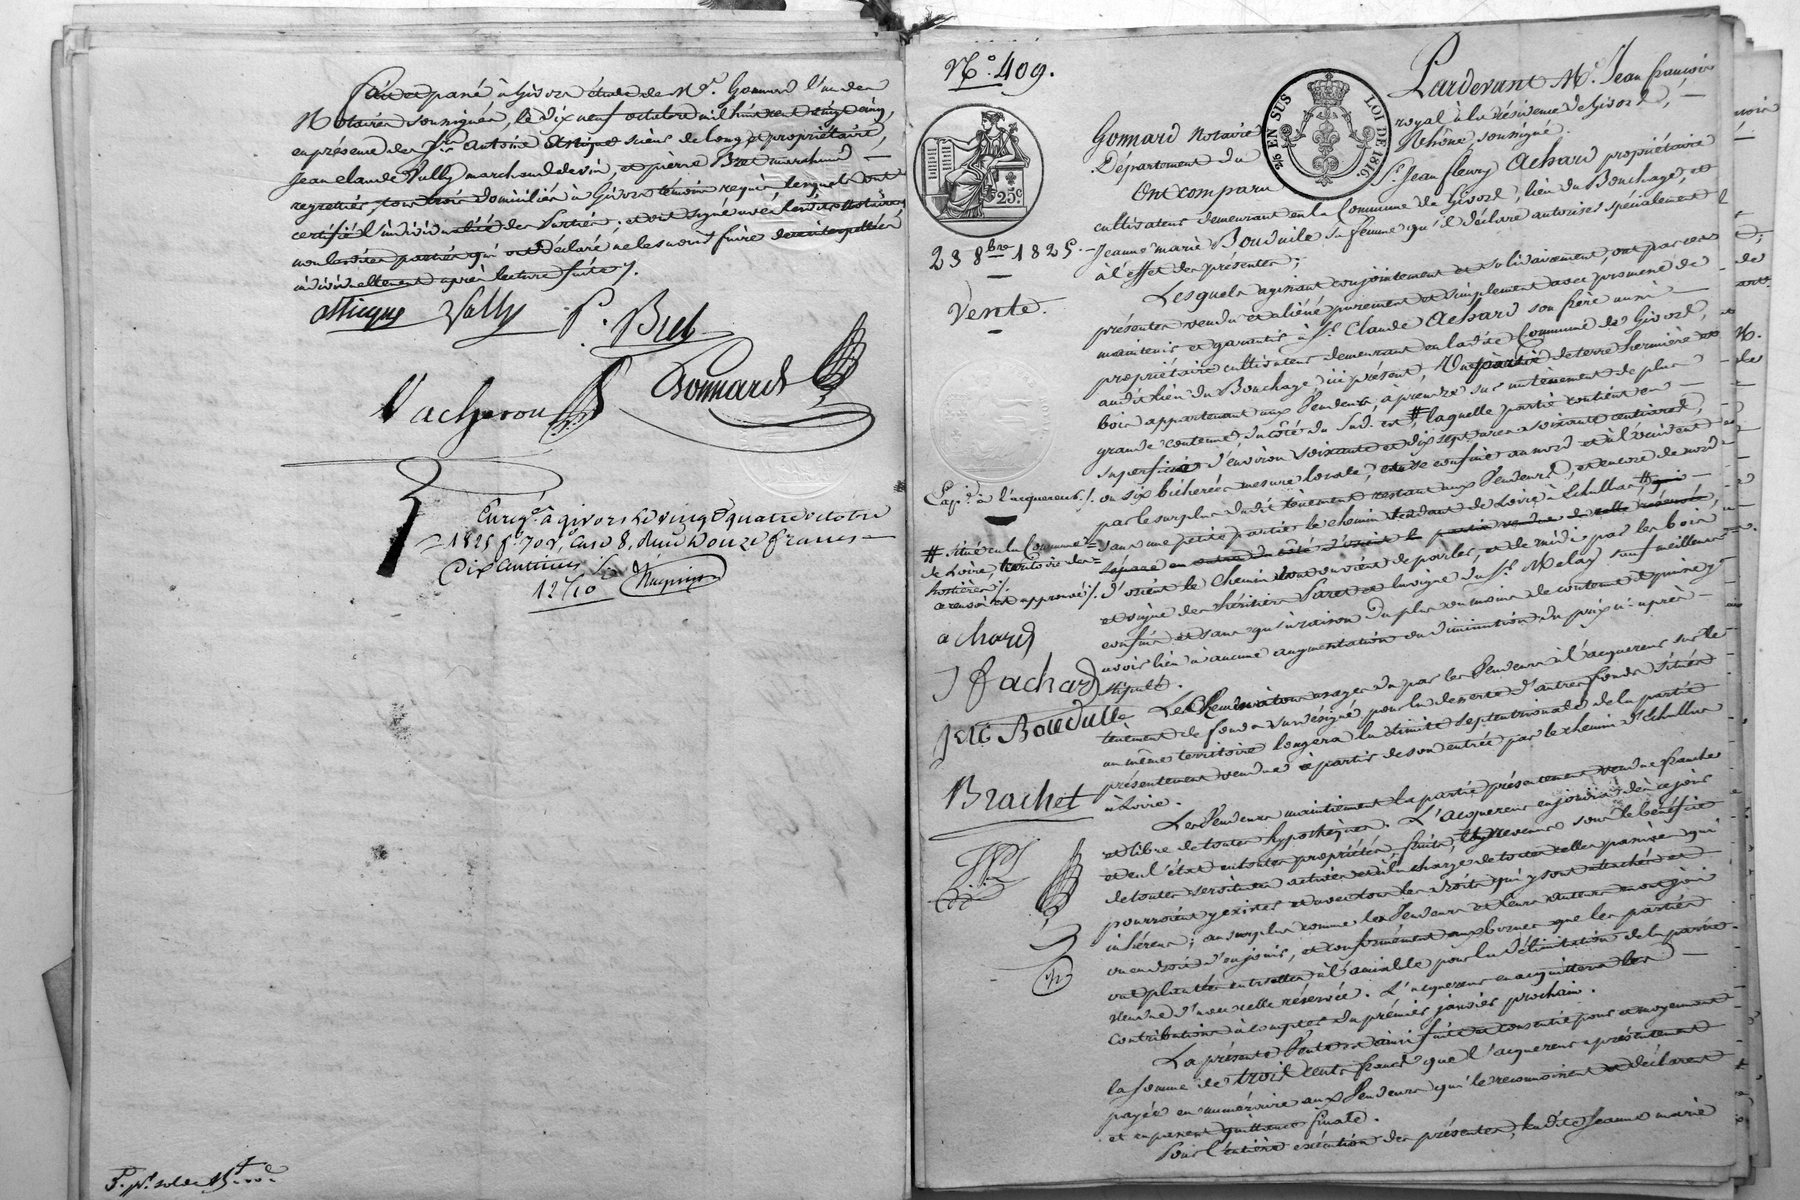 Fait et passé à Givors étude de Me. Gonnard l'un des
Notaires soussignés, le dix neuf octobre mil huit cent vingt cinq,
en présence des Srs. Antoine propriétaire,
Jean Claude Vully marchand de vin, et pierre Bret marchand
tous trois domiciliés à Givors témoins requis lesquels ont
certifié l'individualité des Parties, et ont signé avec les dits Notaires
non les dites parties qui ont déclaré ne le savoir faire de ce interpellées
individuellement après lecture faite /.
Vully P. Bret
Vacheron Gonnard
Enregé. à givors le vingt quatre octobre
1825 fo. 70 vo, Case 8, Reçu Douze francs
Dix centimes
12f10
No. 409.
25c.
23 8bre 1825.
Vente.
26 EN SUS
LOI DE 1816
Pardevant Me. Jean françois
Gonnard Notaire royal à la résidence de Givors,
Département du Rhône, soussigné.
Ont comparu Sr. Jean fleury Achard propriétaire
cultivateur demeurant en la Commune de Givors, lieu du Bouchage, et
Jeanne marie Bouduile sa femme qu'il déclare autoriser spécialement
à l'effet des présentes;
Lesquels agissant conjointement et solidairement, ont par ces
présentes vendu et aliéné purement et simplement avec promesse de
maintenir et garantir à Sr. Claude Achard son frère aussi
propriétaire cultivateur demeurant en la dite Commune de Givors,
audit lieu du Bouchage, ici présent, Une partie de terre hermière et
bois appartenant aux Vendeurs, à prendre sur un tènement de plus
grande contenue, du côté du Sud-est, # laquelle partie contient en
superficie d'environ soixante et dix sept ares soixante centiares,
Exp.n à l'acquéreur /.
ou six bicherées mesure locale, et se confine au nord et à l'occident
par le surplus dudit tènement restant aux Vendeurs, et encore de nord
# située en la Commune
de Loire, territoire des
sans une petite partie le chemin tendant de Loire à Echullas #
d'orient le Chemin, et de midi par les bois
et vigne des héritiers et la vigne du Sr. Melay sauf meilleurs
confins et sans qu'à raison du plus ou moins de contenue il puisse y
avoir lieu à aucune augmentation ou diminution du prix ci-après
stipulé.
achard
J f achard
Brachet
par les Vendeurs à l'acquéreur sur le
tènement de fonds susdésigné pour la desserte d'autres fonds situés
au même territoire longera la limite septentrionale de la partie
présentement vendue à partir de son entrée par le chemin d'Echullas
à Loire.
Les Vendeurs maintiennent la partie présentement vendue franche
et libre de toutes hypothèques. L'acquéreur en jouira dès à jour
et en l'état en toutes propriétés, fruits, et revenus sous le bénéfice
de toutes servitudes actives et à la charge de toutes celles passives qui
pourraient y exister et avec tous les droits qui y sont attachés et
inhérens; au surplus comme les Vendeurs et leurs auteurs en ont joui
ou eu droit d'en jouir, et conformément aux bornes que les parties
ont plantées entr'elles à l'amiable pour la délimitation de la partie
vendue d'avec celle réservée. L'acquéreur en acquittera les
contributions à compter du premier janvier prochain.
La présente Vente est ainsi faite et consentie pour et moyennant
la somme de trois cents francs que l'acquéreur a présentement
payée en numéraire aux Vendeurs qui le reconnaissent et déclarent
et en passent quittance finale.
Pour l'entière exécution des présentes, ladite Jeanne marie